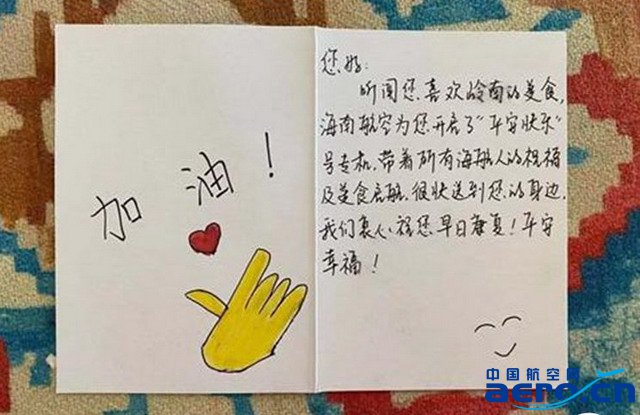 加油！
您好：
听闻您喜欢岭南的美食，
海南航空为您开启了"平安快乐"
号专机，带着所有海航人的祝福
及美食启航，很快送到您的身边，
我们衷心祝您早日康复！平安
幸福！
中国航空网
aero.cn